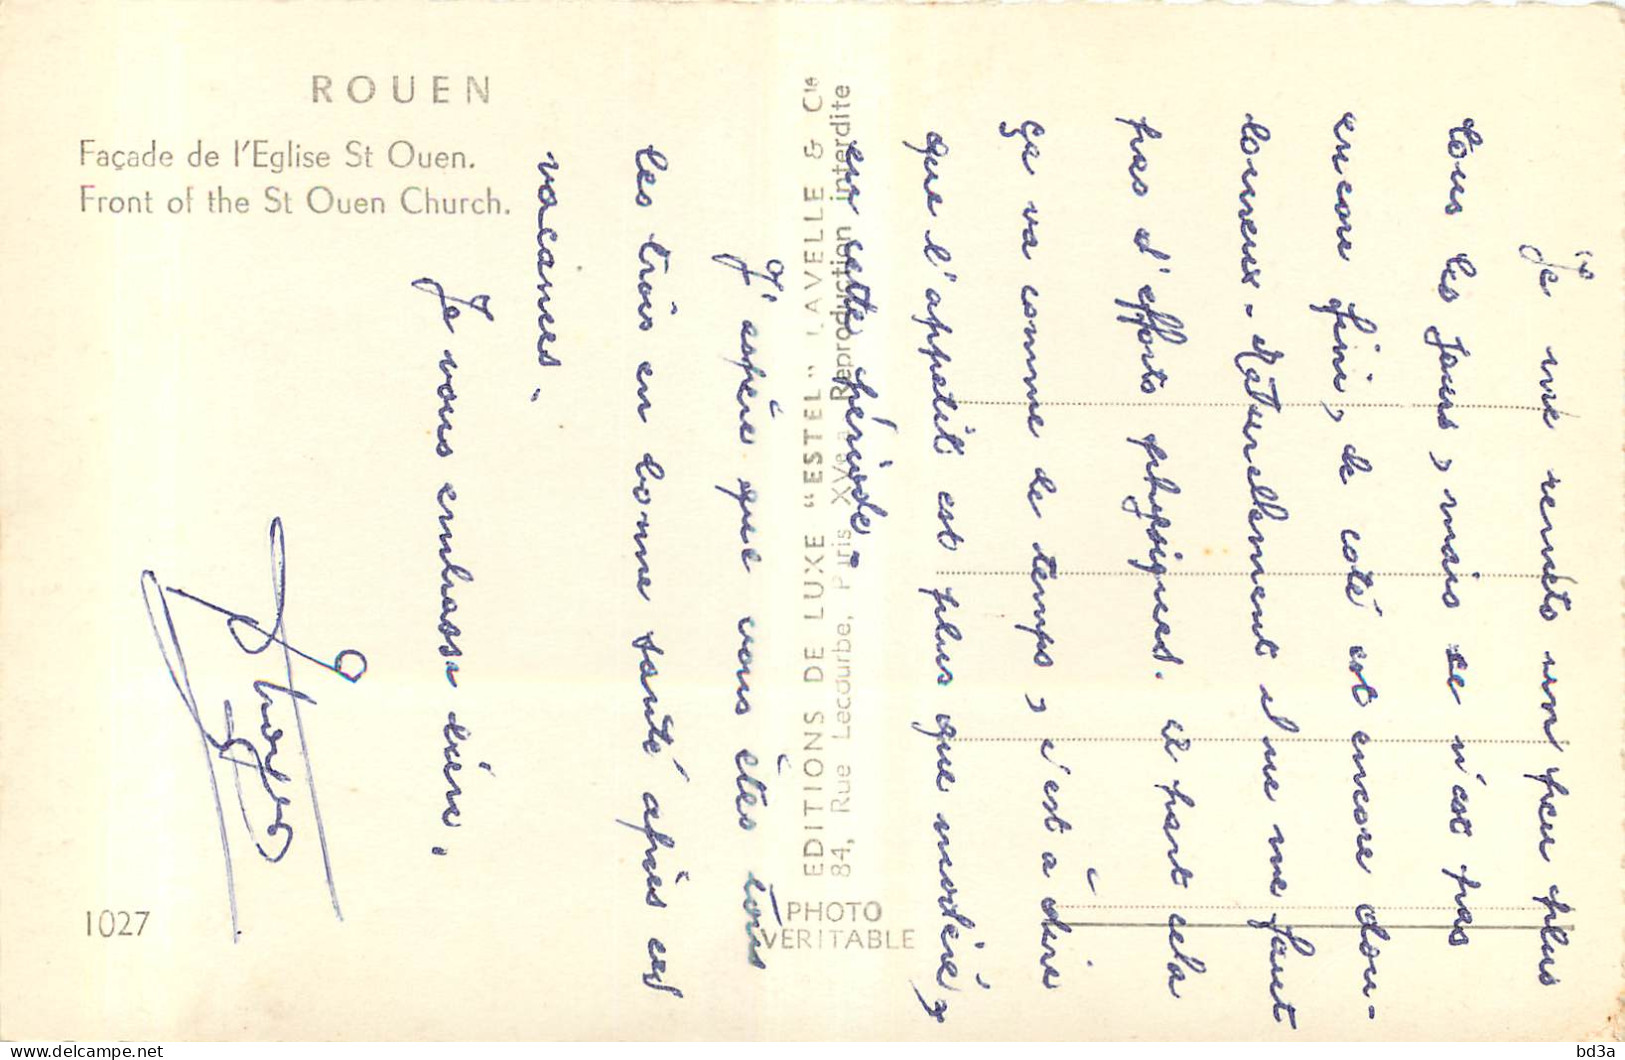 ROUEN
Façade de l'Eglise St Ouen.
Front of the St Ouen Church.
1027
EDITIONS DE LUXE "ESTEL" LAVELLE & Cie
84, Rue Lecourbe, Paris XVe - Reproduction interdite
PHOTO
VERITABLE
Je me remets un peu plus
tous les jours, mais ce n'est pas
encore fini, de coté est encore dou-
loureux - Naturellement il ne me faut
pas d'efforts physiques. à part cela
ça va comme le temps, c'est à dire
que l'appétit est plus que modéré,
en cette période -
J'espère que vous êtes tous
les trois en bonne santé après ces
vacances.
Je vous embrasse
bd3a